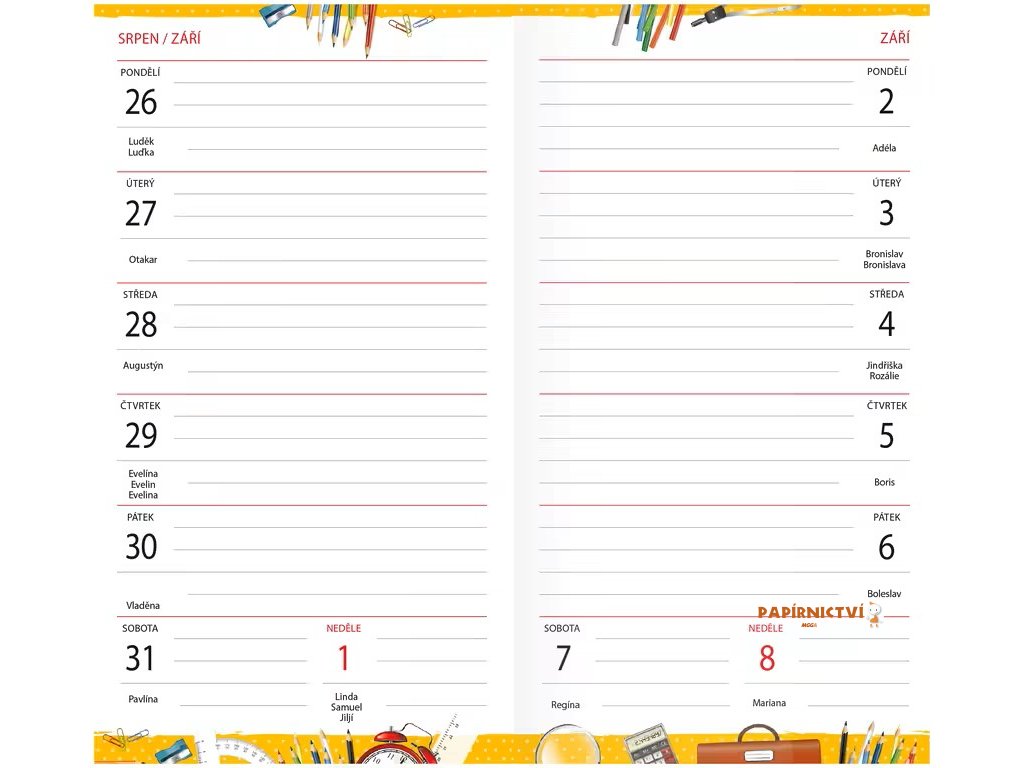 SRPEN / ZÁŘÍ
PONDĚLÍ
26
Luděk
Luďka
ÚTERÝ
27
Otakar
STŘEDA
28
Augustýn
ČTVRTEK
29
Evelína
Evelin
Evelina
PÁTEK
30
Vladěna
SOBOTA
31
Pavlína
NEDĚLE
1
Linda
Samuel
Jiljí
ZÁŘÍ
PONDĚLÍ
2
Adéla
ÚTERÝ
3
Bronislav
Bronislava
STŘEDA
4
Jindřiška
Rozálie
ČTVRTEK
5
Boris
PÁTEK
6
Boleslav
PAPÍRNICTVÍ
SOBOTA
7
Regína
NEDĚLE
8
Mariana